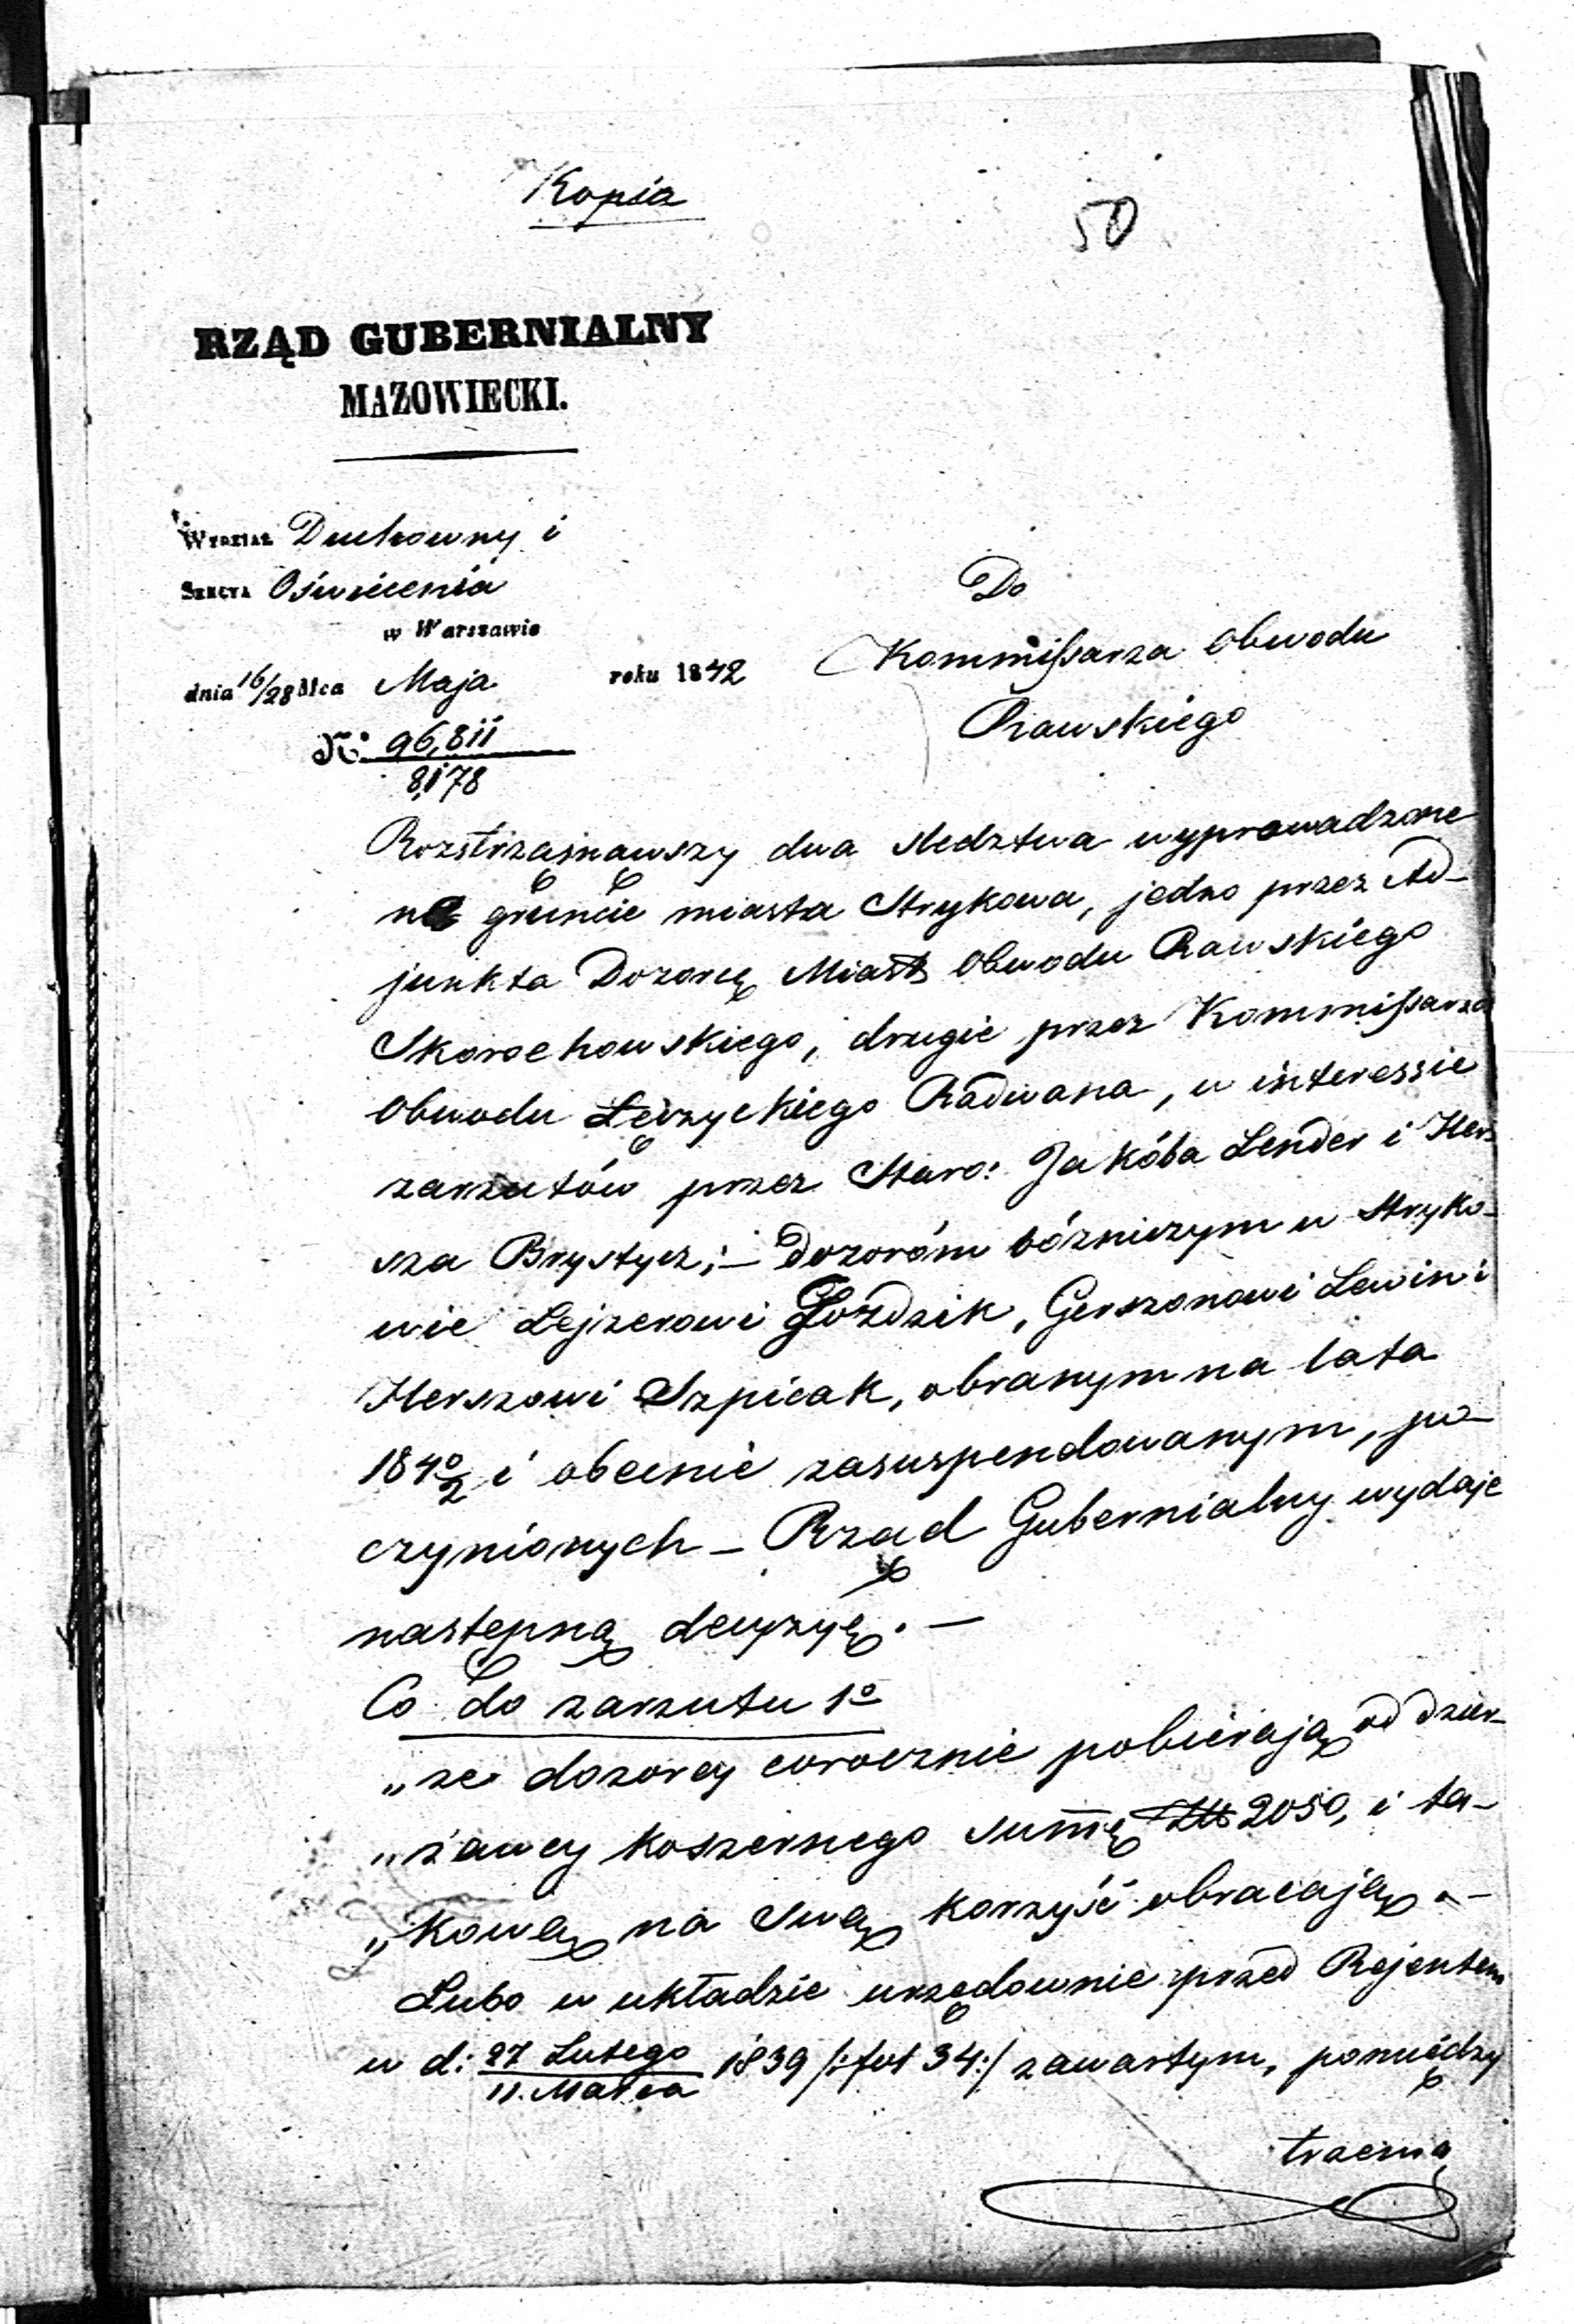 Kopia
50
RZĄD GUBERNIALNY
MAZOWIECKI.
Wydział Duchowny i
Sekcya Oświecenia
w Warszawie
dnia 16/28 Mca Maja roku 1842
№ 96,811
8,178
Do
Kommissarza Obwodu
Rawskiego
Rozstrząsnąwszy dwa sledztwa wyprowadzone
na gruncie miasta Strykowa, jedno przez Ad-
junkta Dozorcę Miast Obwodu Rawskiego
Skorochowskiego, drugie przez Kommissarza
Obwodu Łęczyckiego Radwana, w interessie
zarzutów przez Staro: Jakóba Lender i Her-
sza Brystycz;— Dozoróm bóżniczym w Stryko-
wie Lejzerowi Gozdzik, Gerszonowi Lewin i
Herszowi Szpicak, obranym na lata
1840/2 i obecnie zasuspendowanym, po-
czynionych — Rząd Gubernialny wydaje
następną decyzyę. —
Co do zarzutu 1o
„ze dozorcy corocznie pobierają od dzier-
„żawcy koszernego summę Złt 2050, i ta-
„kową na swą korzyść obracają —
Lubo w układzie urzędownie przed Rejentem
w d: 27 Lutego 1839 /: fol 34:/ zawartym, pomiędzy
11. Marca
trzema